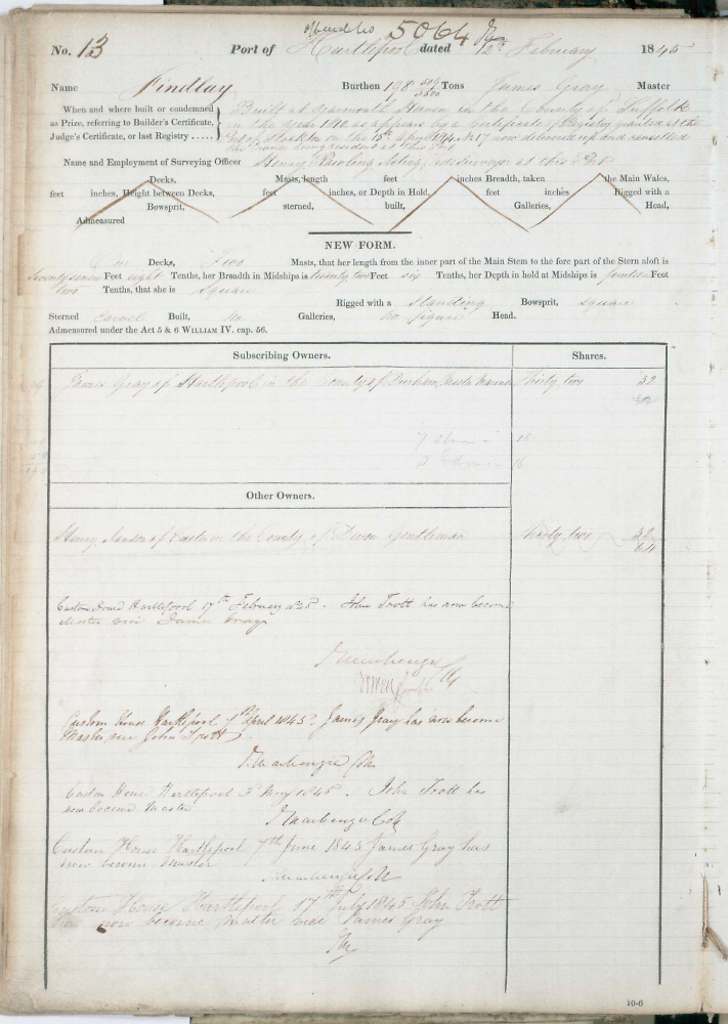 5064
No. 13 Port of Hartlepool dated 12th February 1845
Name Findlay Burthen 198 Tons James Gray Master
When and where built or condemned as Prize, referring to Builder's Certificate, Judge's Certificate, or last Registry
Built at in the County of Suffolk
in the year as appears by a Certificate of Registry granted at
on the 15th April No. 17 now delivered up and cancelled
Name and Employment of Surveying Officer Henry at this Port
Decks, Masts, length feet inches Breadth, taken the Main Wales,
feet inches, Height between Decks, feet inches, or Depth in Hold, feet inches Rigged with a
Bowsprit, sterned, built, Galleries, Head,
Admeasured
NEW FORM.
One Decks, Two Masts, that her length from the inner part of the Main Stem to the fore part of the Stern aloft is
Seventy seven Feet eight Tenths, her Breadth in Midships is twenty two Feet six Tenths, her Depth in hold at Midships is fourteen Feet
two Tenths, that she is Square
Rigged with a standing Bowsprit, square
Sterned Carvel Built, No Galleries, no figure Head.
Admeasured under the Act 5 & 6 WILLIAM IV. cap. 56.
Subscribing Owners. Shares.
James Gray of Hartlepool in the County of Durham, Master Mariner Thirty two 32
16
16
Other Owners.
Henry of in the County of Devon Gentleman thirty two 32
64
Custom House Hartlepool 17th February 1845. John Trott has now become
Master vice James Gray
Custom House Hartlepool 7th April 1845. James Gray has now become
Master vice John Trott.
Custom House Hartlepool 3d May 1845. John Trott has
now become Master
Custom House Hartlepool 7th June 1845 James Gray has
now become Master
Custom House Hartlepool 17th July 1845 John Trott
has now become Master vice James Gray
10-6